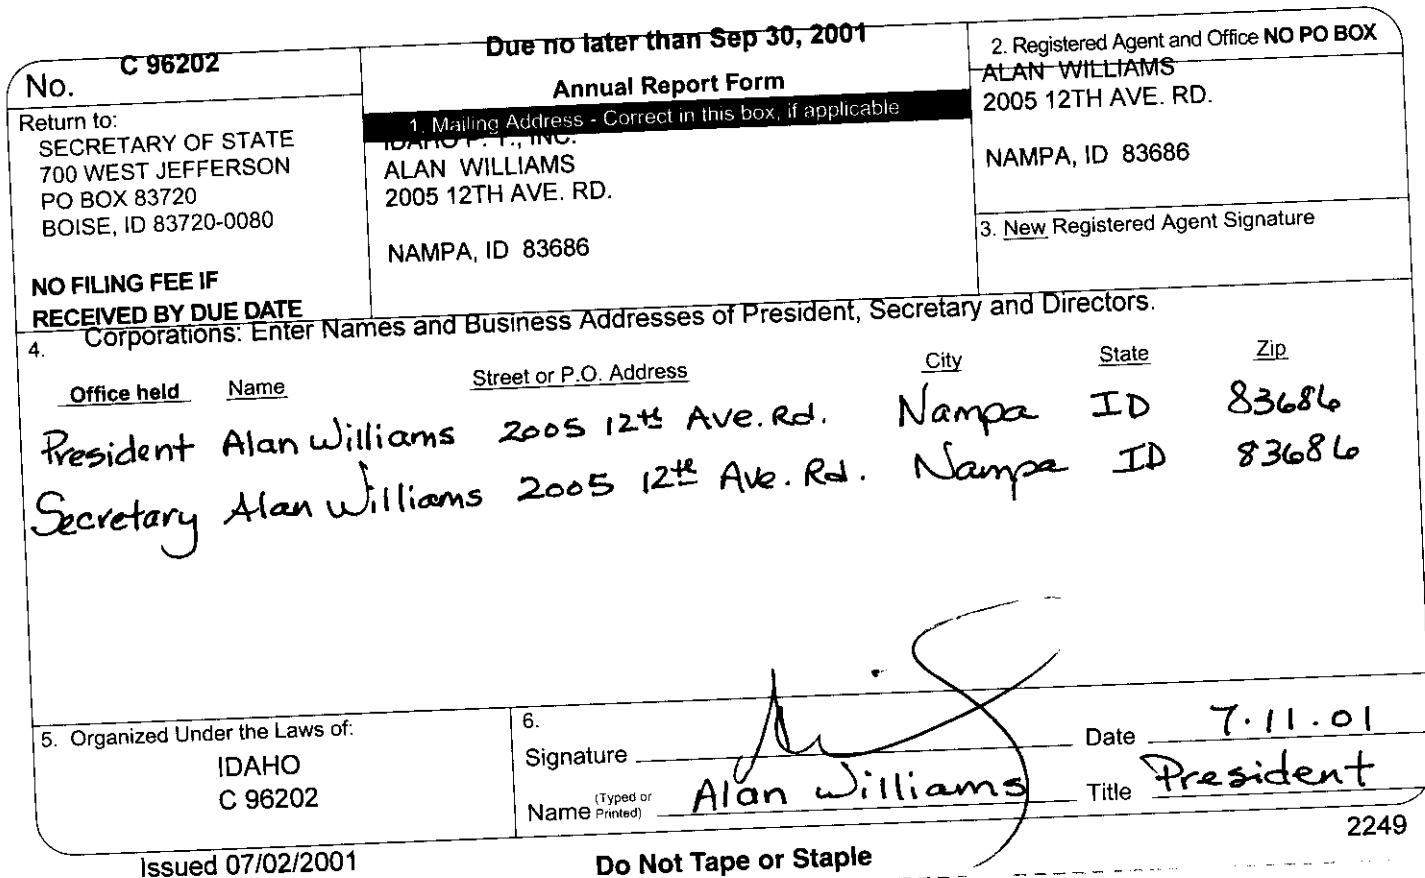 No. C 96202
Due no later than Sep 30, 2001
Annual Report Form
Return to:
SECRETARY OF STATE
700 WEST JEFFERSON
PO BOX 83720
BOISE, ID 83720-0080
NO FILING FEE IF
RECEIVED BY DUE DATE
1. Mailing Address - Correct in this box, if applicable
IDAHO P. T., INC.
ALAN WILLIAMS
2005 12TH AVE. RD.
NAMPA, ID 83686
2. Registered Agent and Office NO PO BOX
ALAN WILLIAMS
2005 12TH AVE. RD.
NAMPA, ID 83686
3. New Registered Agent Signature
4. Corporations: Enter Names and Business Addresses of President, Secretary and Directors.
Office held Name Street or P.O. Address City State Zip
President Alan Williams 2005 12th Ave. Rd. Nampa ID 83686
Secretary Alan Williams 2005 12th Ave. Rd. Nampa ID 83686
5. Organized Under the Laws of:
IDAHO
C 96202
6.
Signature
Date 7.11.01
Name (Typed or Printed) Alan Williams
Title President
2249
Issued 07/02/2001
Do Not Tape or Staple